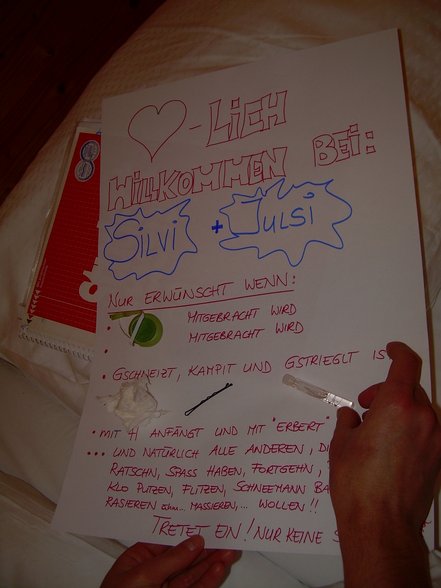 ♥-LICH
WILLKOMMEN BEI:
SILVI + JULSI
NUR ERWÜNSCHT WENN:
• MITGEBRACHT WIRD
• MITGEBRACHT WIRD
• GSCHNEIZT, KAMPIT UND GSTRIEGLT IS
• MIT 4 ANFÄNGT UND MIT "ERBERT"
... UND NATÜRLICH ALLE ANDEREN,
RATSCHN, SPASS HABEN, FORTGEHN,
KLO PUTZEN, FLITZEN, SCHNEEMANN
RASIEREN ähm... MASSIEREN,... WOLLEN!!
TRETET EIN! NUR KEINE